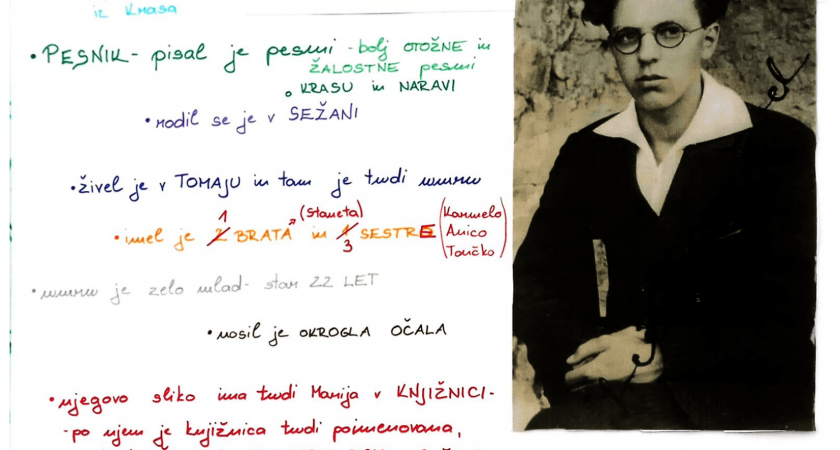 iz Krasa
• PESNIK - pisal je pesmi - bolj OTOŽNE in
ŽALOSTNE pesmi
o KRASU in NARAVI
• rodil se je v SEŽANI
• živel je v TOMAJU in tam je tudi umrl
• imel je 2 1 BRATA (Staneta) in 1 3 SESTRE (Karmelo
Anico
Tončko)
• umrl je zelo mlad - star 22 LET
• nosil je OKROGLA OČALA
• njegovo sliko ima tudi Marija v KNJIŽNICI -
- po njem je knjižnica tudi poimenovana,